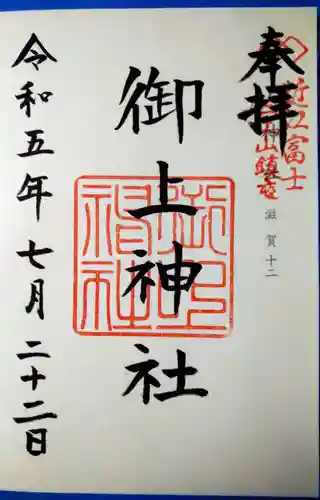 奉拝
近江富士
神山鎮座
滋賀十二
御上神社
御上神社
令和五年七月二十二日